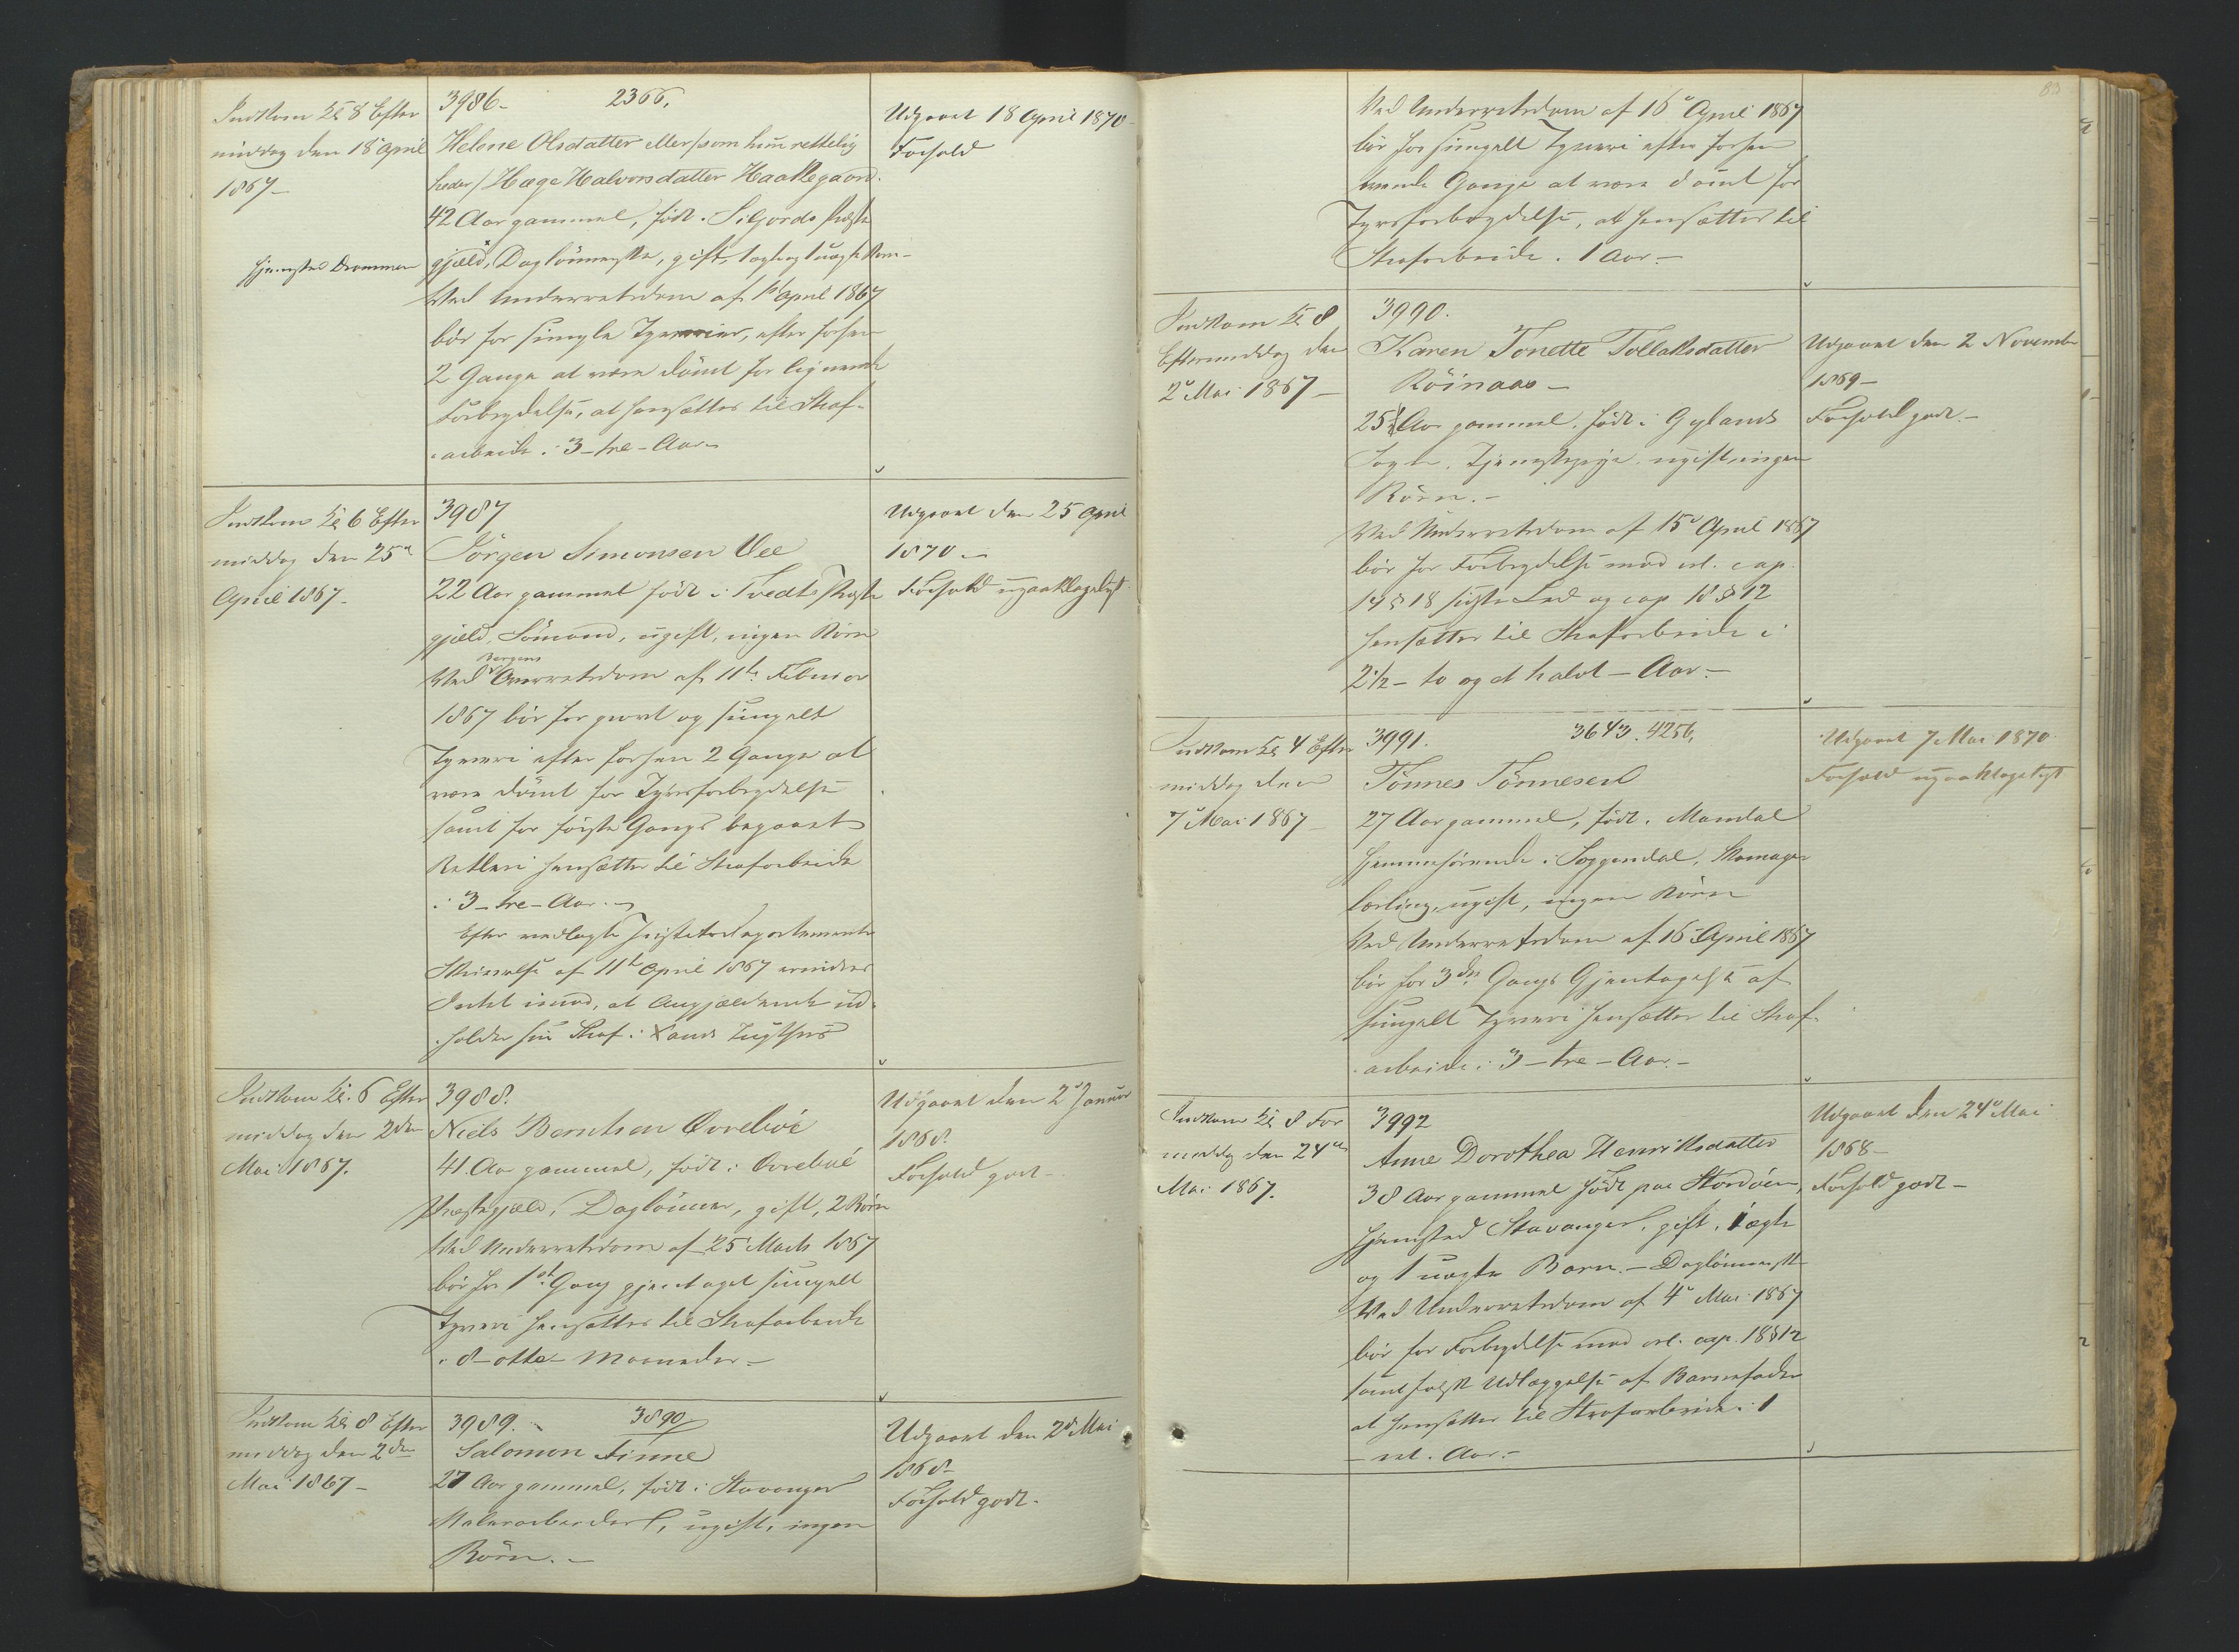 Indkom Kl 8 Efter
middag den 18 April
1867-
Hjemsted Drammen
3986- 2366.
Helene Olsdatter eller/som hun rettelig
heder/Hæge Halvorsdatter Haakkegaard.
42 Aar gammel, födt i Siljords Præste
gjæld, Daglönnerske, gift, 1 ægte og 1 uægte Barn-
Ved Underretsdom af 1 April 1867
bör for simple Tyverier, efter forhen
2 Gange at være dömt for lignende
Forbrydelse, at hensættes til Straf-
arbeide i 3-tre-Aar-
Udgaaet 18 April 1870-
Forhold
Indkom Kl 6 Efter
middag den 25
April 1867-
3987
Jörgen Simonsen Vee
22 Aar gammel födt i Tvedts Præste
gjæld, Sömand, ugift, ingen Börn
Bergens
Ved Overretsdom af 11te Februar
1867 bör for grovt og simpelt
Tyveri efter forhen 2 Gange at
være dömt for Tyvsforbrydelse
samt for förste Gangs begaaet
Betleri hensættes til Strafarbeide
i 3-tre-Aar.-
Efter vedlagte Justitsdepartements
Skrivelse af 11te April 1867 erindres
Intet imod, at Angjældende ud-
holder sin Straf i Xands Tugthus
Udgaaet den 25 April
1870-
Forhold upaaklageligt
Indkom Kl. 6 Efter
middag den 2den
Mai 1867.
3988.
Niels Berntsen Övreböe
41 Aar gammel, födt i Övreböe
Præstegjæld, Daglönner, gift, 2 Börn
Ved Underretsdom af 25 Marts 1867
bör for 1ste Gang gjentaget simpelt
Tyveri hensættes til Strafarbeide
i 8-otte-Maaneder-
Udgaaet den 2 Januar
1868.
Forhold godt-
Indkom Kl 8 Efter
middag den 2den
Mai 1867-
3989. 3890
Salomon Finne
27 Aar gammel, födt i Stavanger
Malerarbeider, ugift, ingen
Börn.-
Udgaaet den 2 Mai
1868-
Forhold godt.
83
Ved Underretsdom af 16 April 1867
bör for simpelt Tyveri efter forhen
Gange at være dömt for
Tyvsforbrydelse, at hensættes til
Strafarbeide i 1 Aar-
Indkom Kl 8
Eftermiddag den
2 Mai 1867-
3990.
Karen Tonette Tollaksdatter
Röinaas-
25 Aar gammel, födt i Gylands
Sogn, Tjenestepige, ugift, ingen
Börn.-
Ved Underretsdom af 15 April 1867
bör for Forbrydelse mod crl. cap.
14 § 18 sidste Led og cap 18 § 12
hensættes til Strafarbeide i
2½- to og et halvt-Aar-
Udgaaet den 2 November
1869-
Forhold godt-
Indkom Kl 4 Efter
middag den
7 Mai 1867-
3991. 3643. 4256.
Tönnes Tönnesen
27 Aar gammel, födt i Mandal
hjemmehörende i Soggendal, Skomager
lærling, ugift, ingen Börn
Ved Underretsdom af 16 April 1867
bör for 3die Gangs Gjentagelse af
simpelt Tyveri hensættes til Straf-
arbeide i 3-tre-Aar.-
Udgaaet 7 Mai 1870
Forhold upaaklageligt
Indkom Kl 8 For
middag den 24
Mai 1867.
3992
Anne Dorothea Henriksdatter
38 Aar gammel födt paa Stordöen,
Hjemsted Stavanger, gift, 1 ægte
og 1 uægte Barn.-Daglönnerske
Ved Underretsdom af 4 Mai 1867
bör for Forbrydelse mod crl. cap. 18 § 12
samt falsk Udlæggelse af Barnefader
at hensættes til Strafarbeide i 1
-et- Aar.-
Udgaaet den 24 Mai
1868-
Forhold godt-